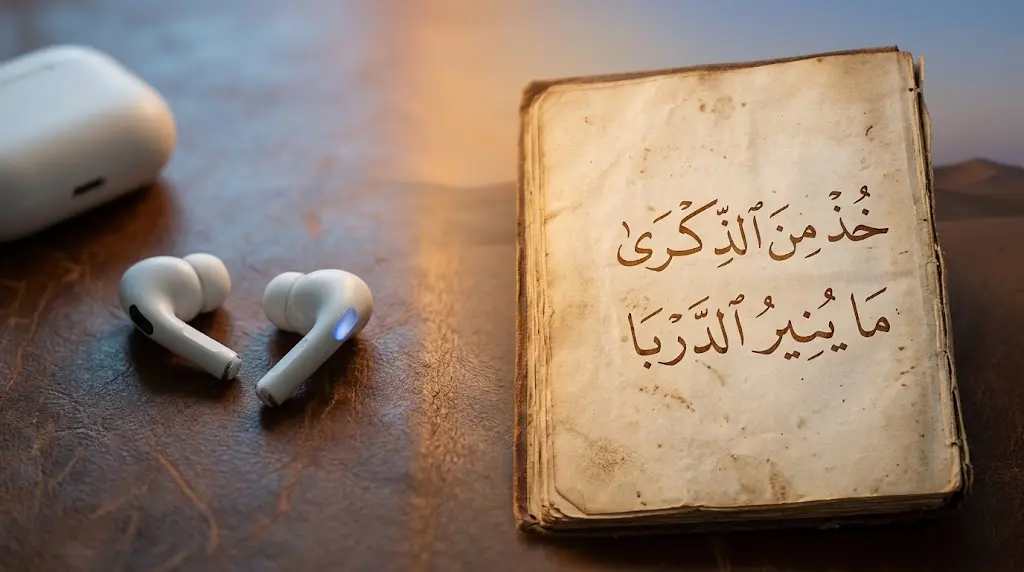 خُذْ مِنَ ٱلذِّكْرَىٰ
مَا يُنِيرُ ٱلدَّرْبَا